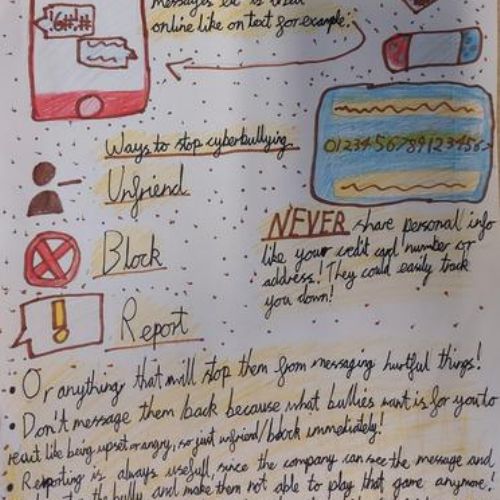 !6#!#
messages etc is treat
online like on text for example:
Ways to stop cyberbullying
0123456789123456
Unfriend
NEVER share personal info
like your credit card number or
address! They could easily track
you down!
Block
Report
• Or anything that will stop them from messaging hurtful things!
• Don't message them back because what bullies want is for you to
react like being upset or angry, so just unfriend/block immediately!
• Reporting is always usefull, since the company can see the message and
the bully and make them not able to play that game anymore.